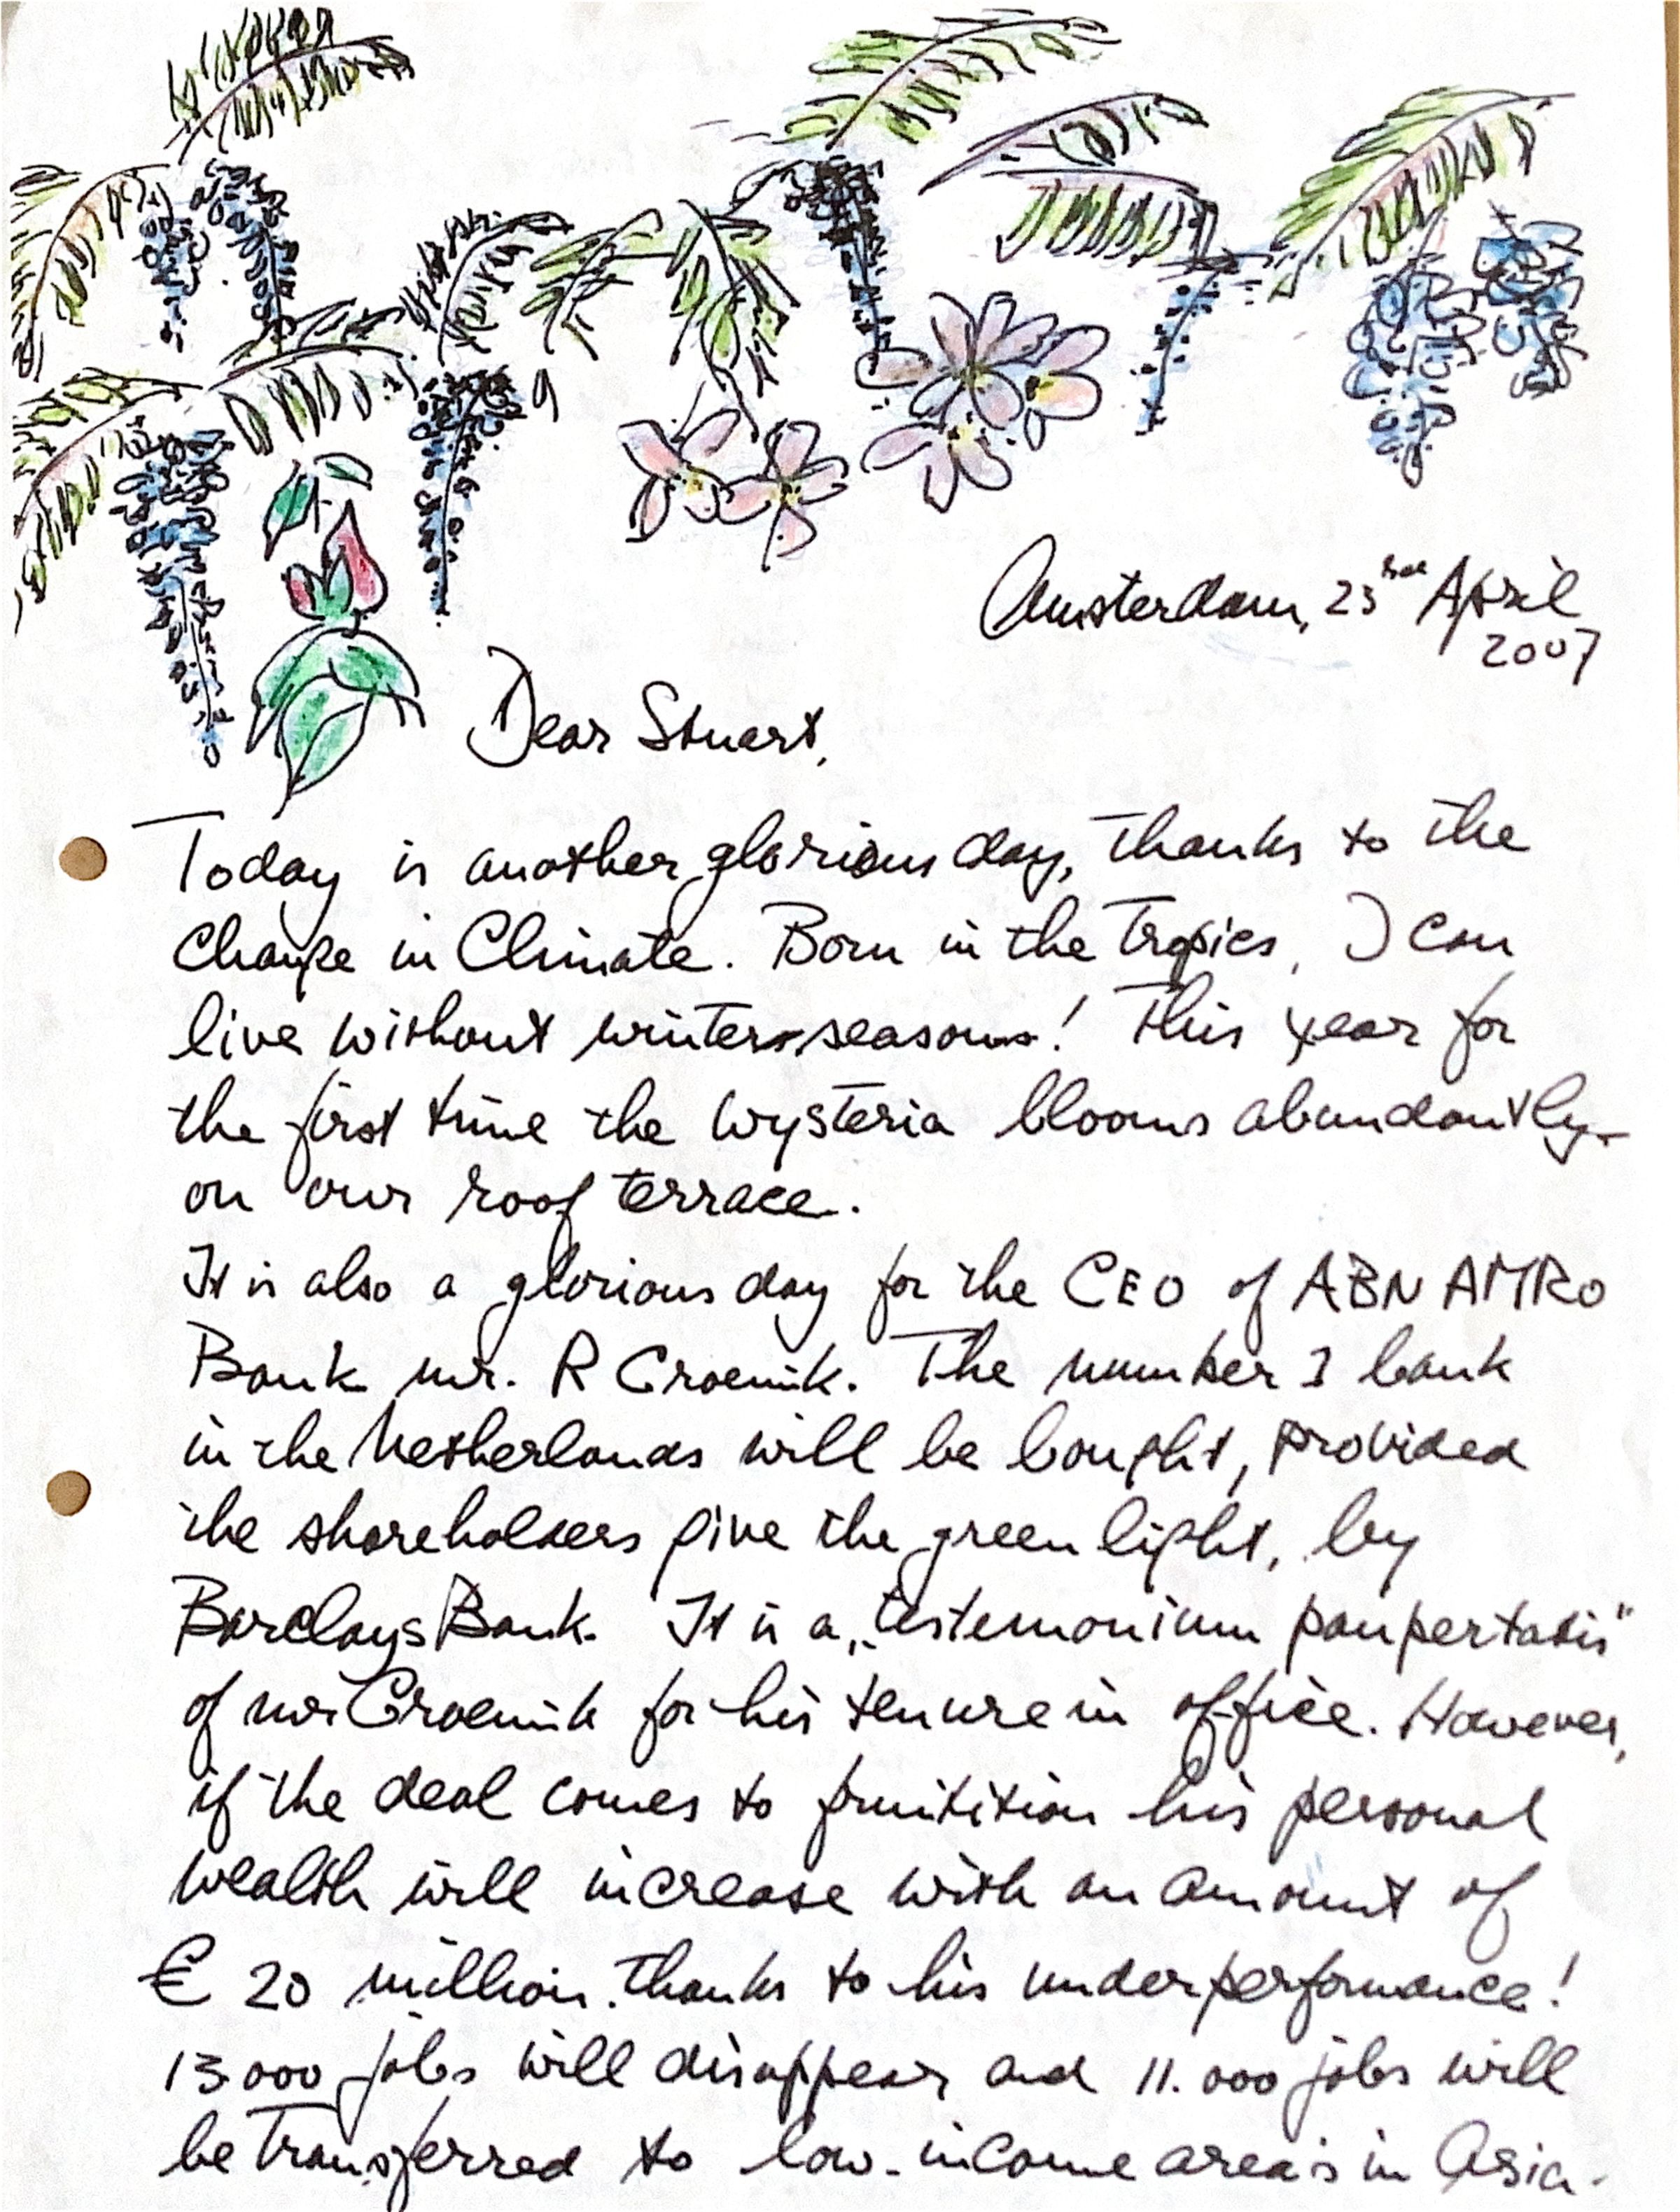 Amsterdam, 23rd April
2007
Dear Stuart,
Today is another glorious day, thanks to the
Change in Climate. Born in the Tropics, I can
live without winter-seasons! This year for
the first time the Wysteria blooms abundantly
on our roof terrace.
It is also a glorious day for the CEO of ABN AMRO
Bank mr. R Groenink. The number 1 bank
in the Netherlands will be bought, provided
the shareholders give the green light, by
Barclays Bank. It is a „testemonium paupertatis"
of mr Groenink for his tenure in office. However,
if the deal comes to fruitition his personal
wealth will increase with an amount of
€ 20 million. thanks to his underperformance!
13.000 jobs will disappear and 11.000 jobs will
be transferred to low-income area's in Asia.